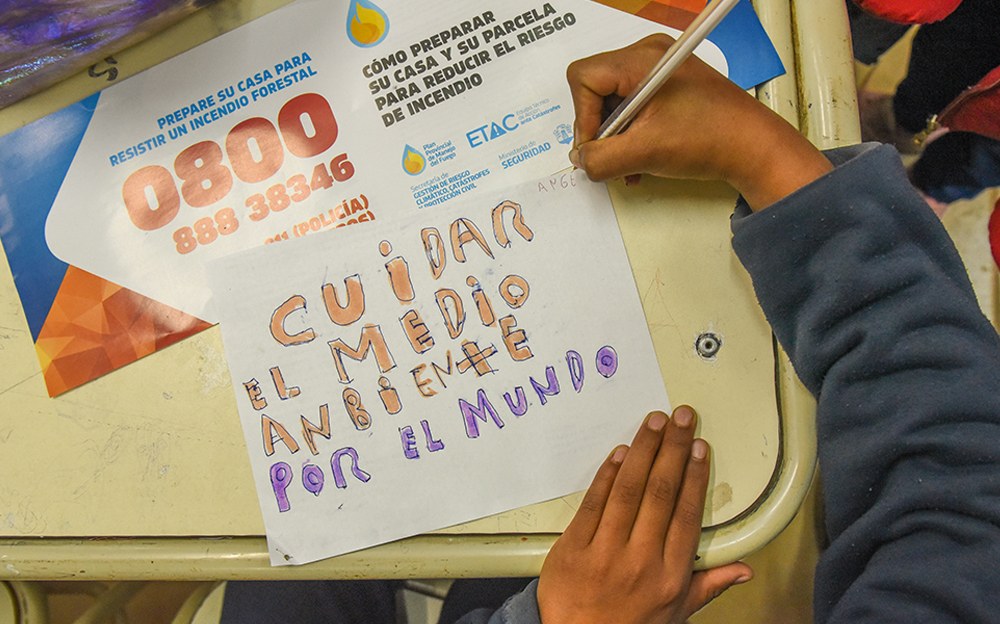 PREPARE SU CASA PARA
RESISTIR UN INCENDIO FORESTAL
0800
888 38346
911 (POLICÍA)
CÓMO PREPARAR
SU CASA Y SU PARCELA
PARA REDUCIR EL RIESGO
DE INCENDIO
Plan
Provincial
de Manejo
del Fuego
ETAC
Equipo Técnico
de Acción
ante Catástrofes
Secretaría de
GESTIÓN DE RIESGO
CLIMÁTICO, CATÁSTROFES
Y PROTECCIÓN CIVIL
Ministerio de
SEGURIDAD
ANGE
CUiDAR
EL MEDiO
ANBiENTE
POR EL MUNDO